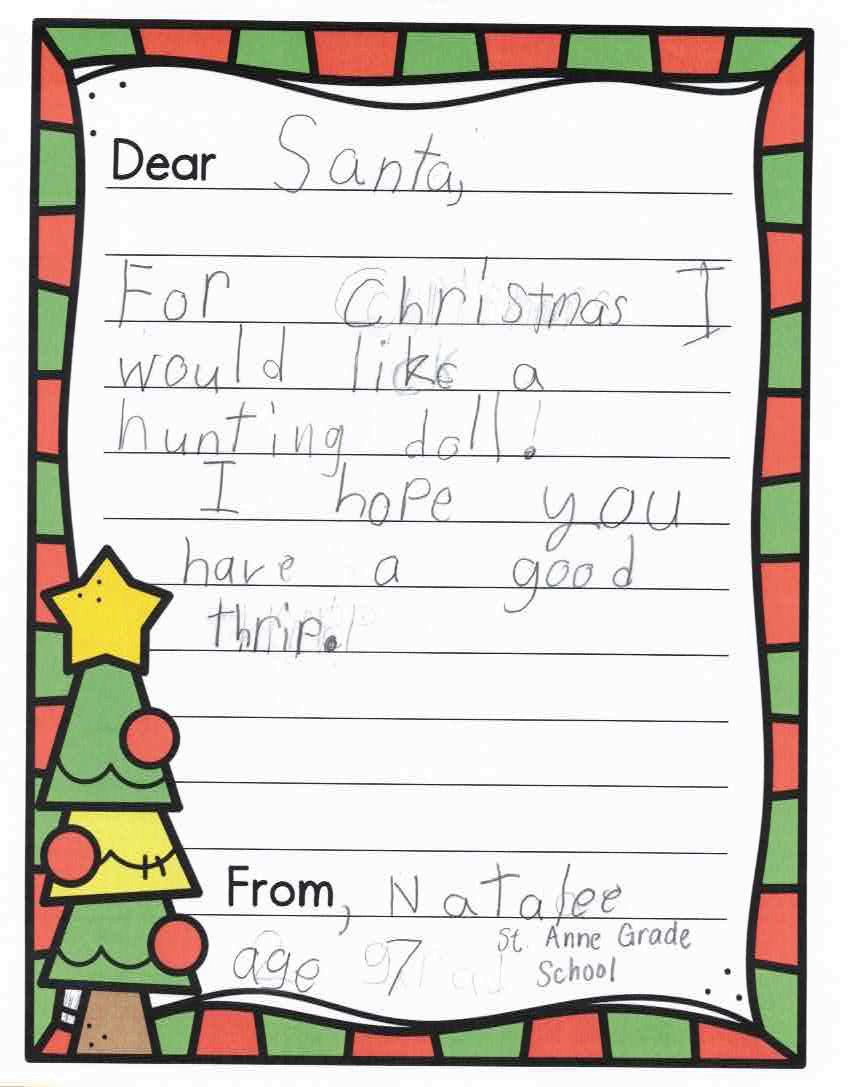 Dear Santa,
For Christmas I
would like a
hunting doll!
I hope you
have a good
thrip.
From, Natalee
age 7 St. Anne Grade
School